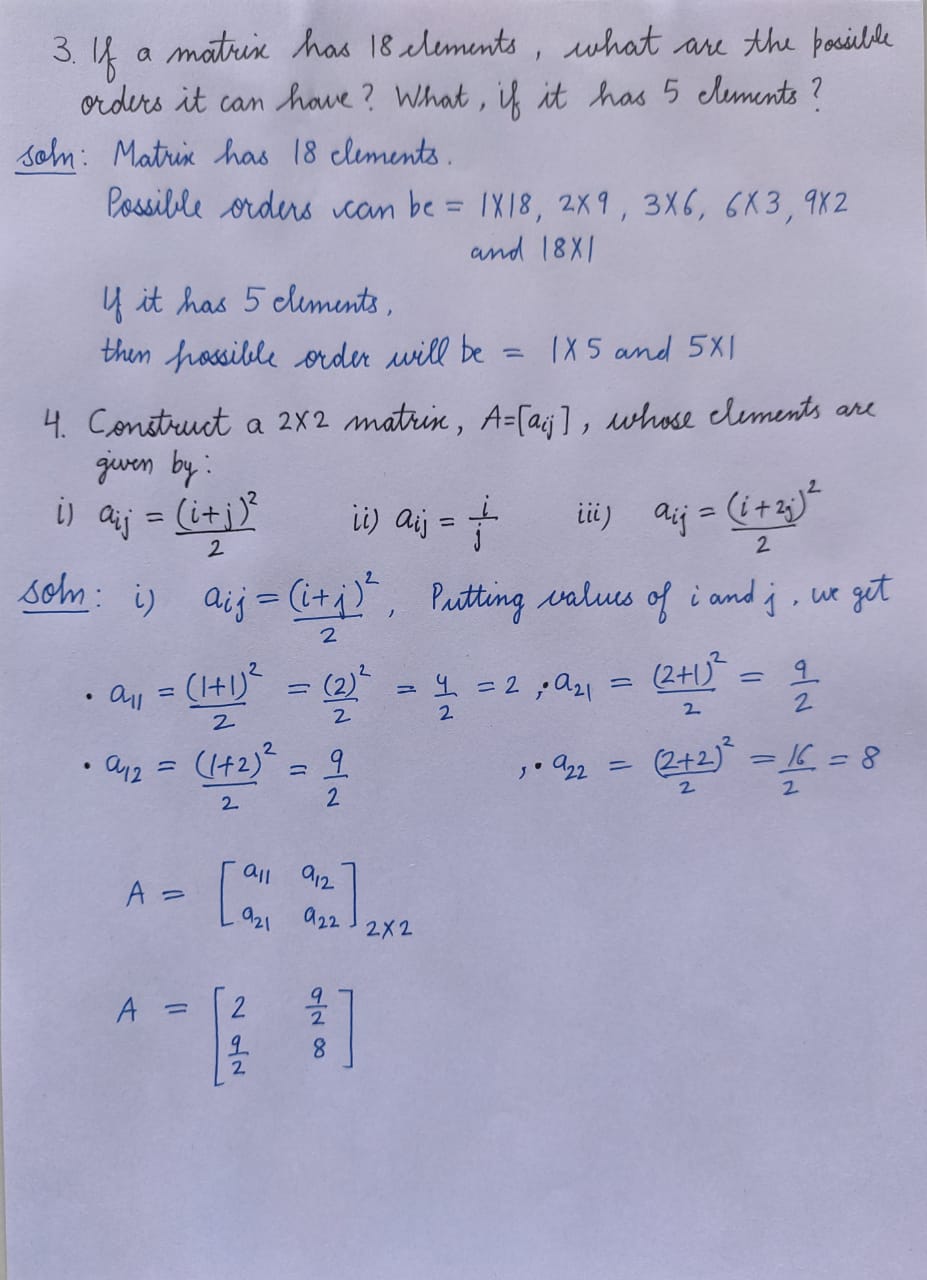 3. If a matrix has 18 elements, what are the possible
orders it can have? What, if it has 5 elements?
soln: Matrix has 18 elements.
Possible orders can be = 1X18, 2X9, 3X6, 6X3, 9X2
and 18X1
If it has 5 elements,
then possible order will be = 1X5 and 5X1
4. Construct a 2X2 matrix, A=[aij], whose elements are
given by:
i) aij = (i+j)²/2 ii) aij = i/j iii) aij = (i+2j)²/2
soln: i) aij = (i+j)²/2, Putting values of i and j, we get
• a11 = (1+1)²/2 = (2)²/2 = 4/2 = 2, • a21 = (2+1)²/2 = 9/2
• a12 = (1+2)²/2 = 9/2 , • a22 = (2+2)²/2 = 16/2 = 8
A = [a11 a12
a21 a22] 2X2
A = [2 9/2
9/2 8]